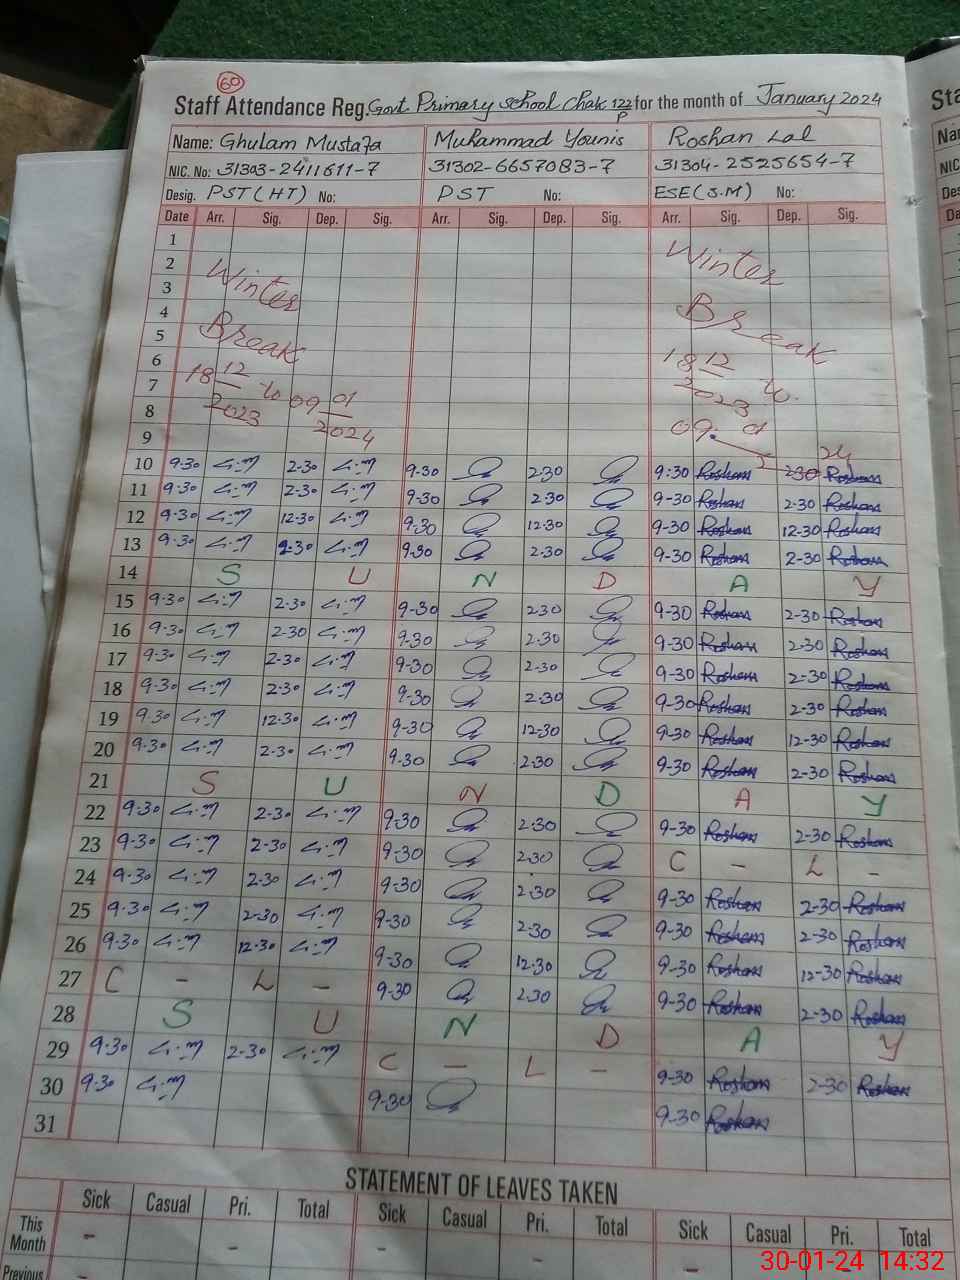 60
Staff Attendance Reg. Govt. Primary school Chak 122/P for the month of January 2024
Name: Ghulam Mustafa Muhammad Younis Roshan Lal
NIC. No: 31303-2411611-7 31302-6657083-7 31304-2525654-7
Desig. PST (HT) No: PST No: ESE (S.M) No:
Date Arr. Sig. Dep. Sig. Arr. Sig. Dep. Sig. Arr. Sig. Dep. Sig.
1
2 Winter Winter
3
4 Break Break
5
6
7 18 12/2023 to 09 01/2024 18 12/2023 to 09 01
8
9
10 9-30 2-30 9-30 2-30 9:30 Roshan 2-30 Roshan
11 9-30 2-30 9-30 2-30 9-30 Roshan 2-30 Roshan
12 9-30 12-30 9-30 12-30 9-30 Roshan 12-30 Roshan
13 9-30 2-30 9-30 2-30 9-30 Roshan 2-30 Roshan
14 S U N D A Y
15 9-30 2-30 9-30 2-30 9-30 Roshan 2-30 Roshan
16 9-30 2-30 9-30 2-30 9-30 Roshan 2-30 Roshan
17 9-30 2-30 9-30 2-30 9-30 Roshan 2-30 Roshan
18 9-30 2-30 9-30 2-30 9-30 Roshan 2-30 Roshan
19 9-30 12-30 9-30 12-30 9-30 Roshan 12-30 Roshan
20 9-30 2-30 9-30 2-30 9-30 Roshan 2-30 Roshan
21 S U N D A Y
22 9-30 2-30 9-30 2-30 9-30 Roshan 2-30 Roshan
23 9-30 2-30 9-30 2-30 C - L -
24 9-30 2-30 9-30 2-30 9-30 Roshan 2-30 Roshan
25 9-30 2-30 9-30 2-30 9-30 Roshan 2-30 Roshan
26 9-30 12-30 9-30 12-30 9-30 Roshan 12-30 Roshan
27 C - L - 9-30 2-30 9-30 Roshan 2-30 Roshan
28 S U N D A Y
29 9-30 2-30 C - L - 9-30 Roshan 2-30 Roshan
30 9-30 9-30 9-30 Roshan
31
STATEMENT OF LEAVES TAKEN
Sick Casual Pri. Total Sick Casual Pri. Total Sick Casual Pri. Total
This Month - - - - - -
Previous
30-01-24 14:32